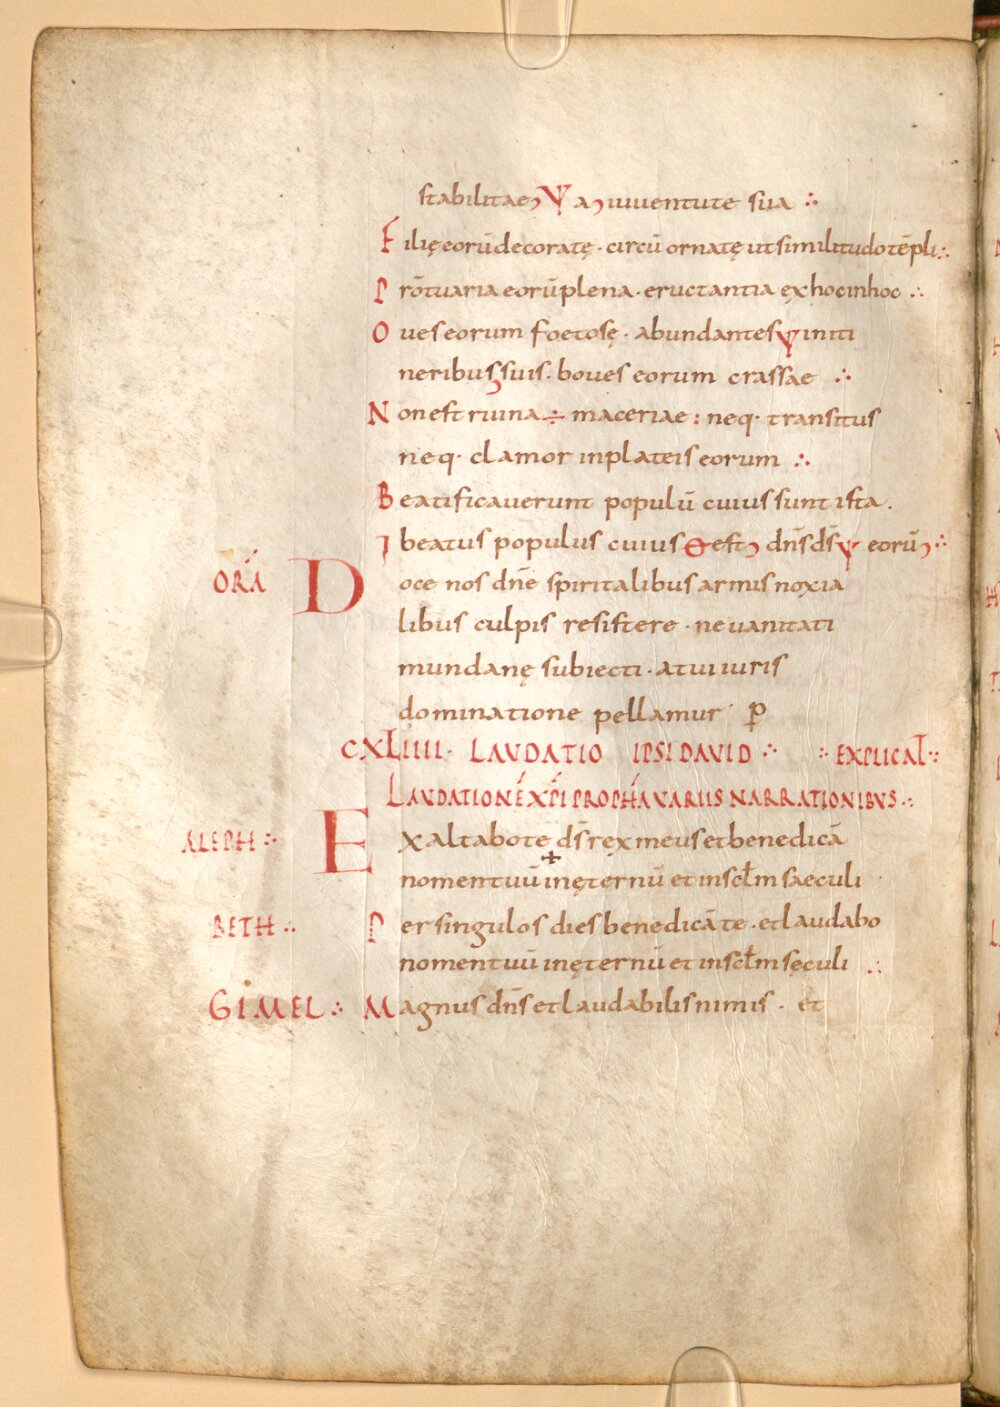 stabilitae Ψ a iuuentute sua ∴
Filię eorū decoratę · circū ornatę ut similitudo tēpli ∴
Prōtuaria eorū plena · eructantia ex hoc in hoc ∴
Oues eorum foetosę · abundantes in iti
neribus suis · boues eorum crassae ∴
Non est ruina ÷ maceriae : neq· transitus
neq· clamor in plateis eorum ∴
Beatificauerunt populū cuius sunt ista .
beatus populus cuius est dn̄s ds̄ eorū ∴
ORA Doce nos dn̄e spiritalibus armis noxia
libus culpis resistere · ne uanitati
mundanę subiecti · a tui iuris
dominatione pellamur p
CXLIIII · LAUDATIO IPSI DAVID ∴ ∴ EXPLICAT ∴
LAUDATIONĒ XPI PROPHA VARIIS NARRATIONIBVS ∴
ALEPH ∴ Exaltabo te ds̄ rex meus et benedicā
nomen tuū in ęternū et in scłm saeculi
BETH ∴ Per singulos dies benedicā te · et laudabo
nomen tuū in ęternū et in scłm sęculi ∴
GIMEL ∴ Magnus dn̄s et laudabilis nimis · et